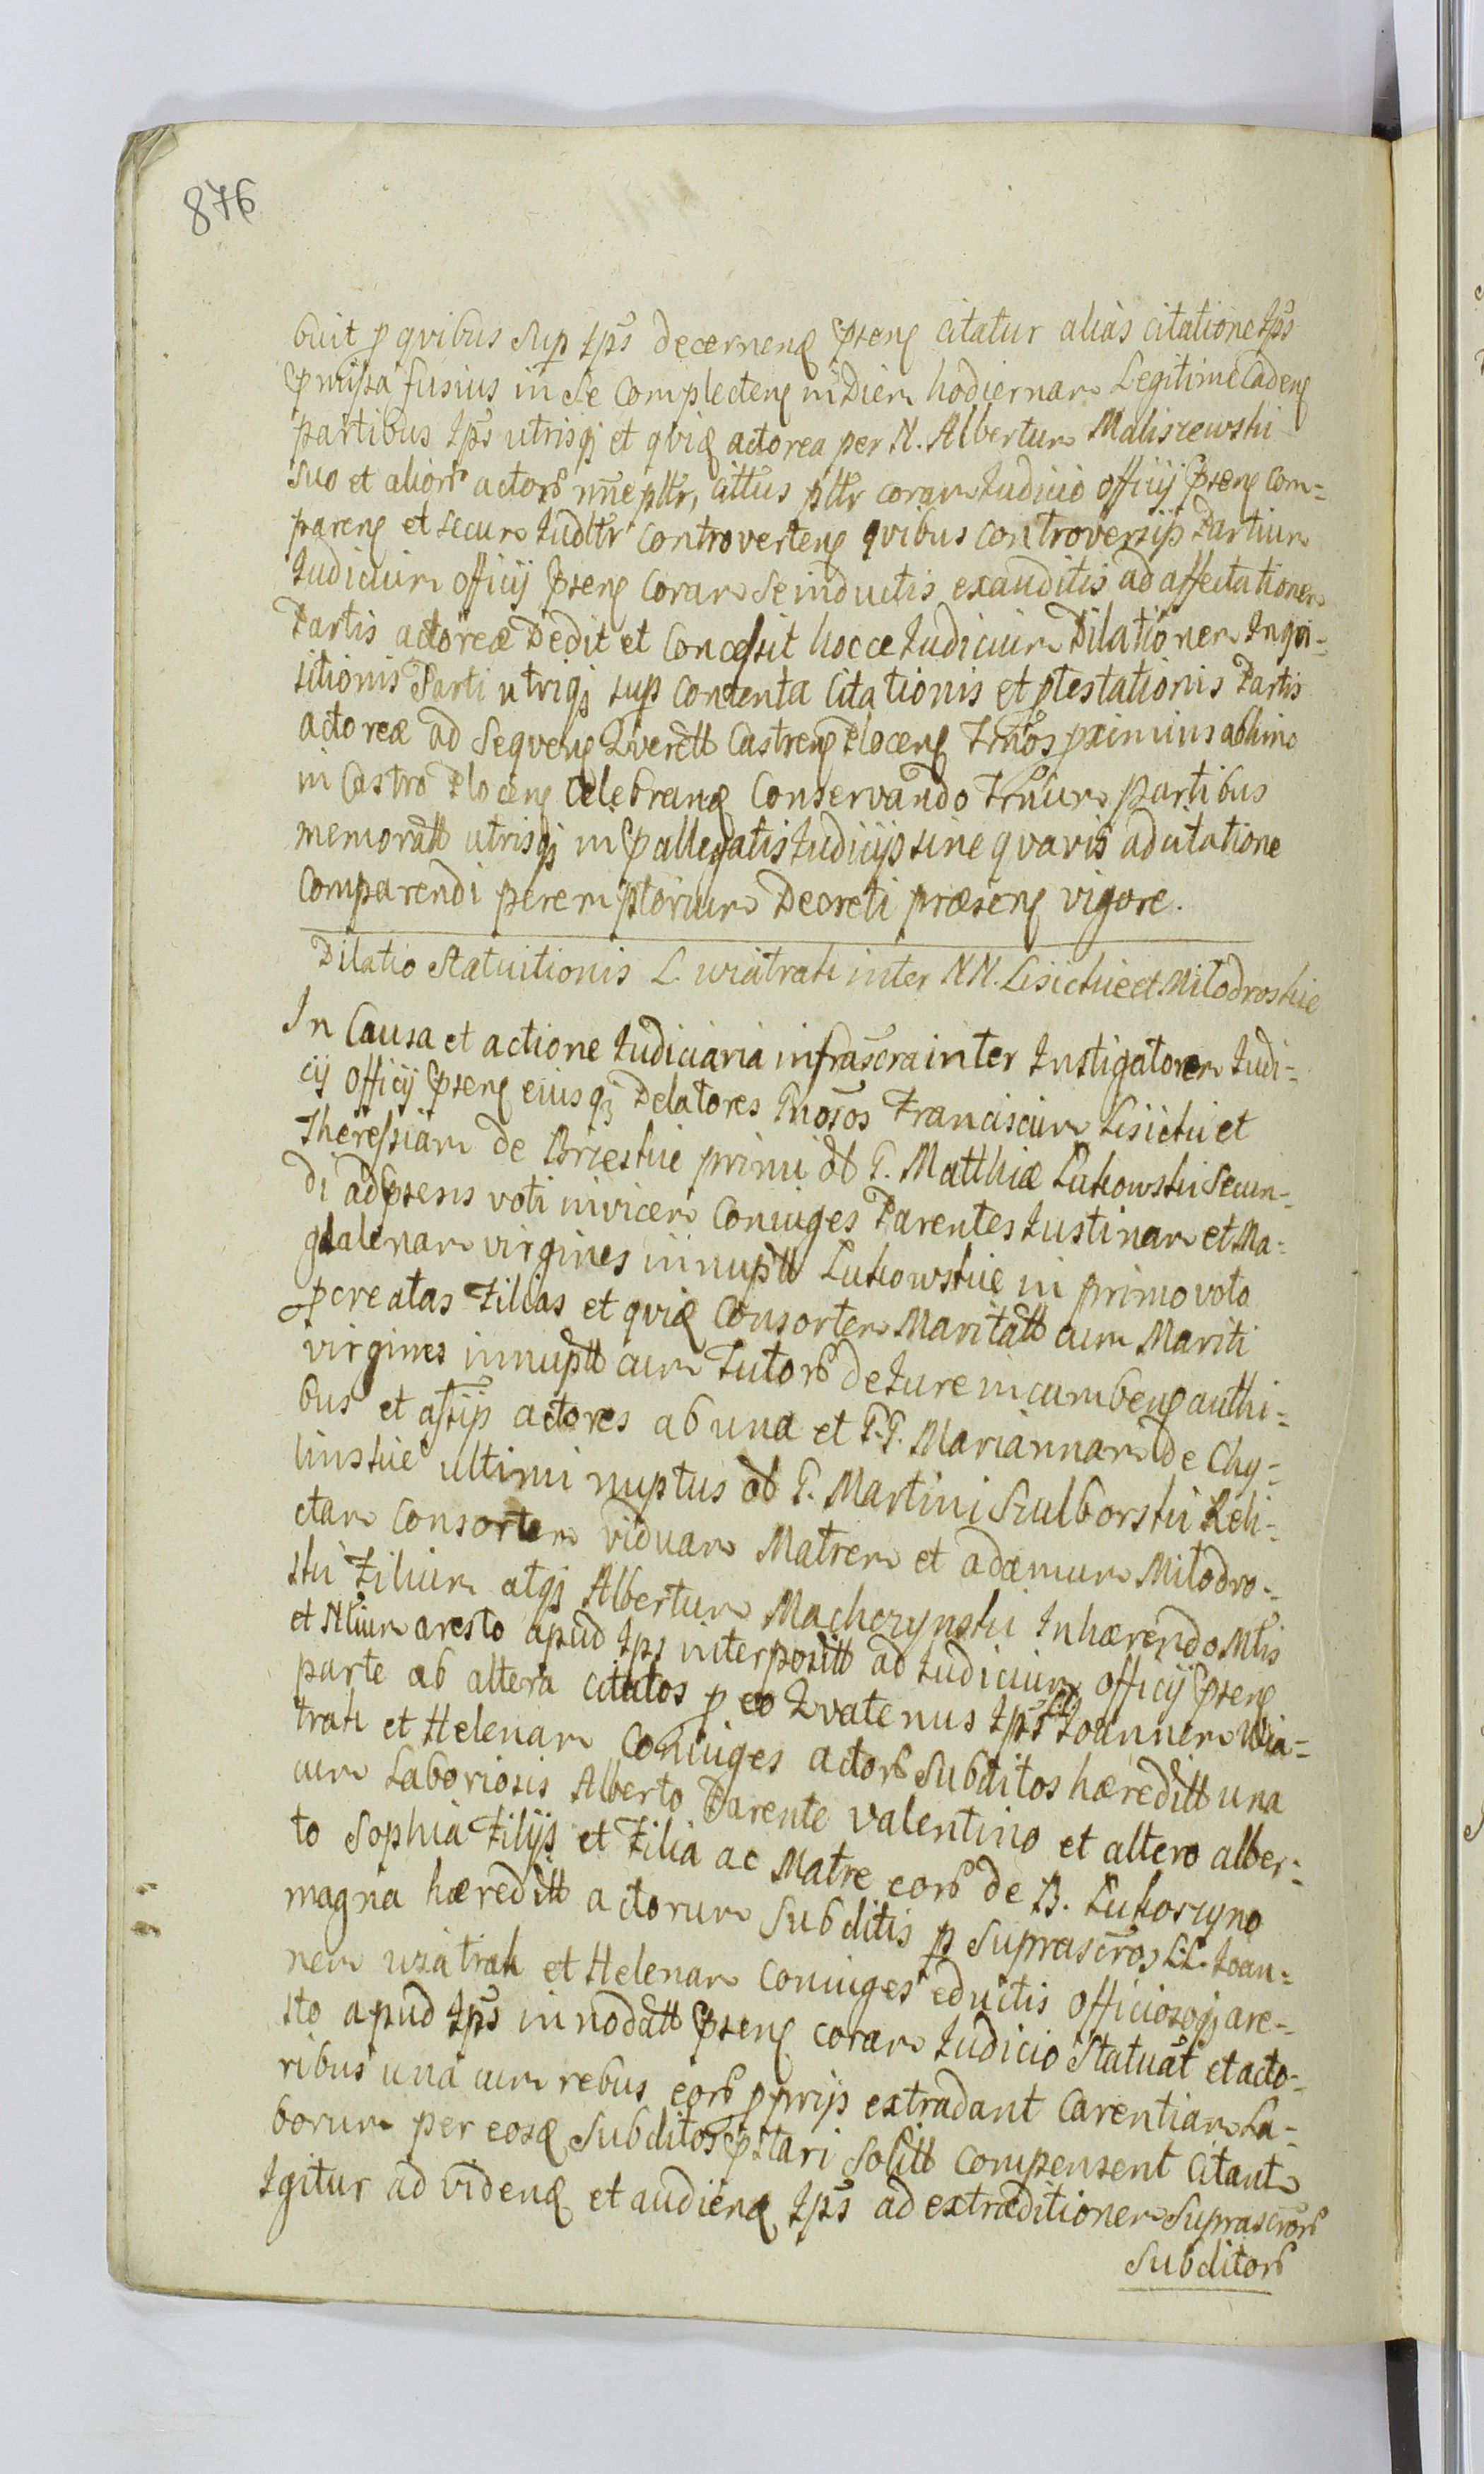 876
buit p qvibus sup Ips decernend psens citatur alias citatione Ips
pmissa fusius in se complectens in Diem hodiernam Legitime cadens
partibus Ips utrisq et qvid actorea per N. Albertum Maliszewski
suo et alior actor nne pltr, cittus pltr coram Iudicio officij psens com=
parens et secum Iudltr controvertens qvibus controversijs Partium
Iudicium officij psens coram se inductis exauditis ad affectationem
Partis actoreæ Dedit et concessit hocce Iudicium Dilationem Inqvi=
sitionis Parti utriq sup contenta Citationis et ptestationis Partis
actoreæ ad seqvens Qverell Castrens Plocens Trnos pximius abhinc
in Castro Plocens celebrand Conservando Trnum partibus
memoratt utrisq in pallegatis Iudicijs sine qvavis adcitatione
comparendi peremptorium Decreti præsens vigore.
Dilatio statuitionis L. wiatrak inter NN. Lisickie et Milodroskie
In Causa et actione Iudiciaria infrascra inter Instigatorem Iudi=
cij officij psens eiusq Delatores Gnosos Franciscum Lisicki et
Theressiam de Brzeskie primi ol G. Matthiæ Lukowski secun=
di ad psens voti invicem Coniuges Parentes Iustinam et Ma=
gdalenam virgines innuptt Lukowskie in primo voto
pcreatas Filias et qvid Consortem Maritatt cum Mariti
virgines innuptt cum Tutor de Iure incumbens authi=
bus et assijs actores ab una et G.G. Mariannam de Chy=
linskie ultimi nuptus ol G. Martini Szulborski Reli=
ctam Consortem viduam Matrem et adamum Milodro=
ski Filium atq Albertum Machczynski Inhærendo Mtis
et Nlium aresto apud Ips interpositt ad Iudicium officij psens
parte ab altera citatos p eo Qvatenus Ips LL Ioannem wia=
trak et Helenam Coniuges actor subditos hæreditt una
cum Laboriosis Alberto Parente valentino et altero alber=
to Sophia Filijs et Filia ac Matre eor de B. Lukoszyno
magna hæreditt actorum subditis p suprascros LL. Ioan=
nem wiatrak et Helenam coniuges eductis officiosoq are=
sto apud Ips innodatt psens coram Iudicio Statuat et acto=
ribus una cum rebus eor pprijs extradant Carentiam La=
borum per eosd subditos pstari solitt compensent Citant
Igitur ad vidend et audiend Ips ad extraditionem suprascror
subditor